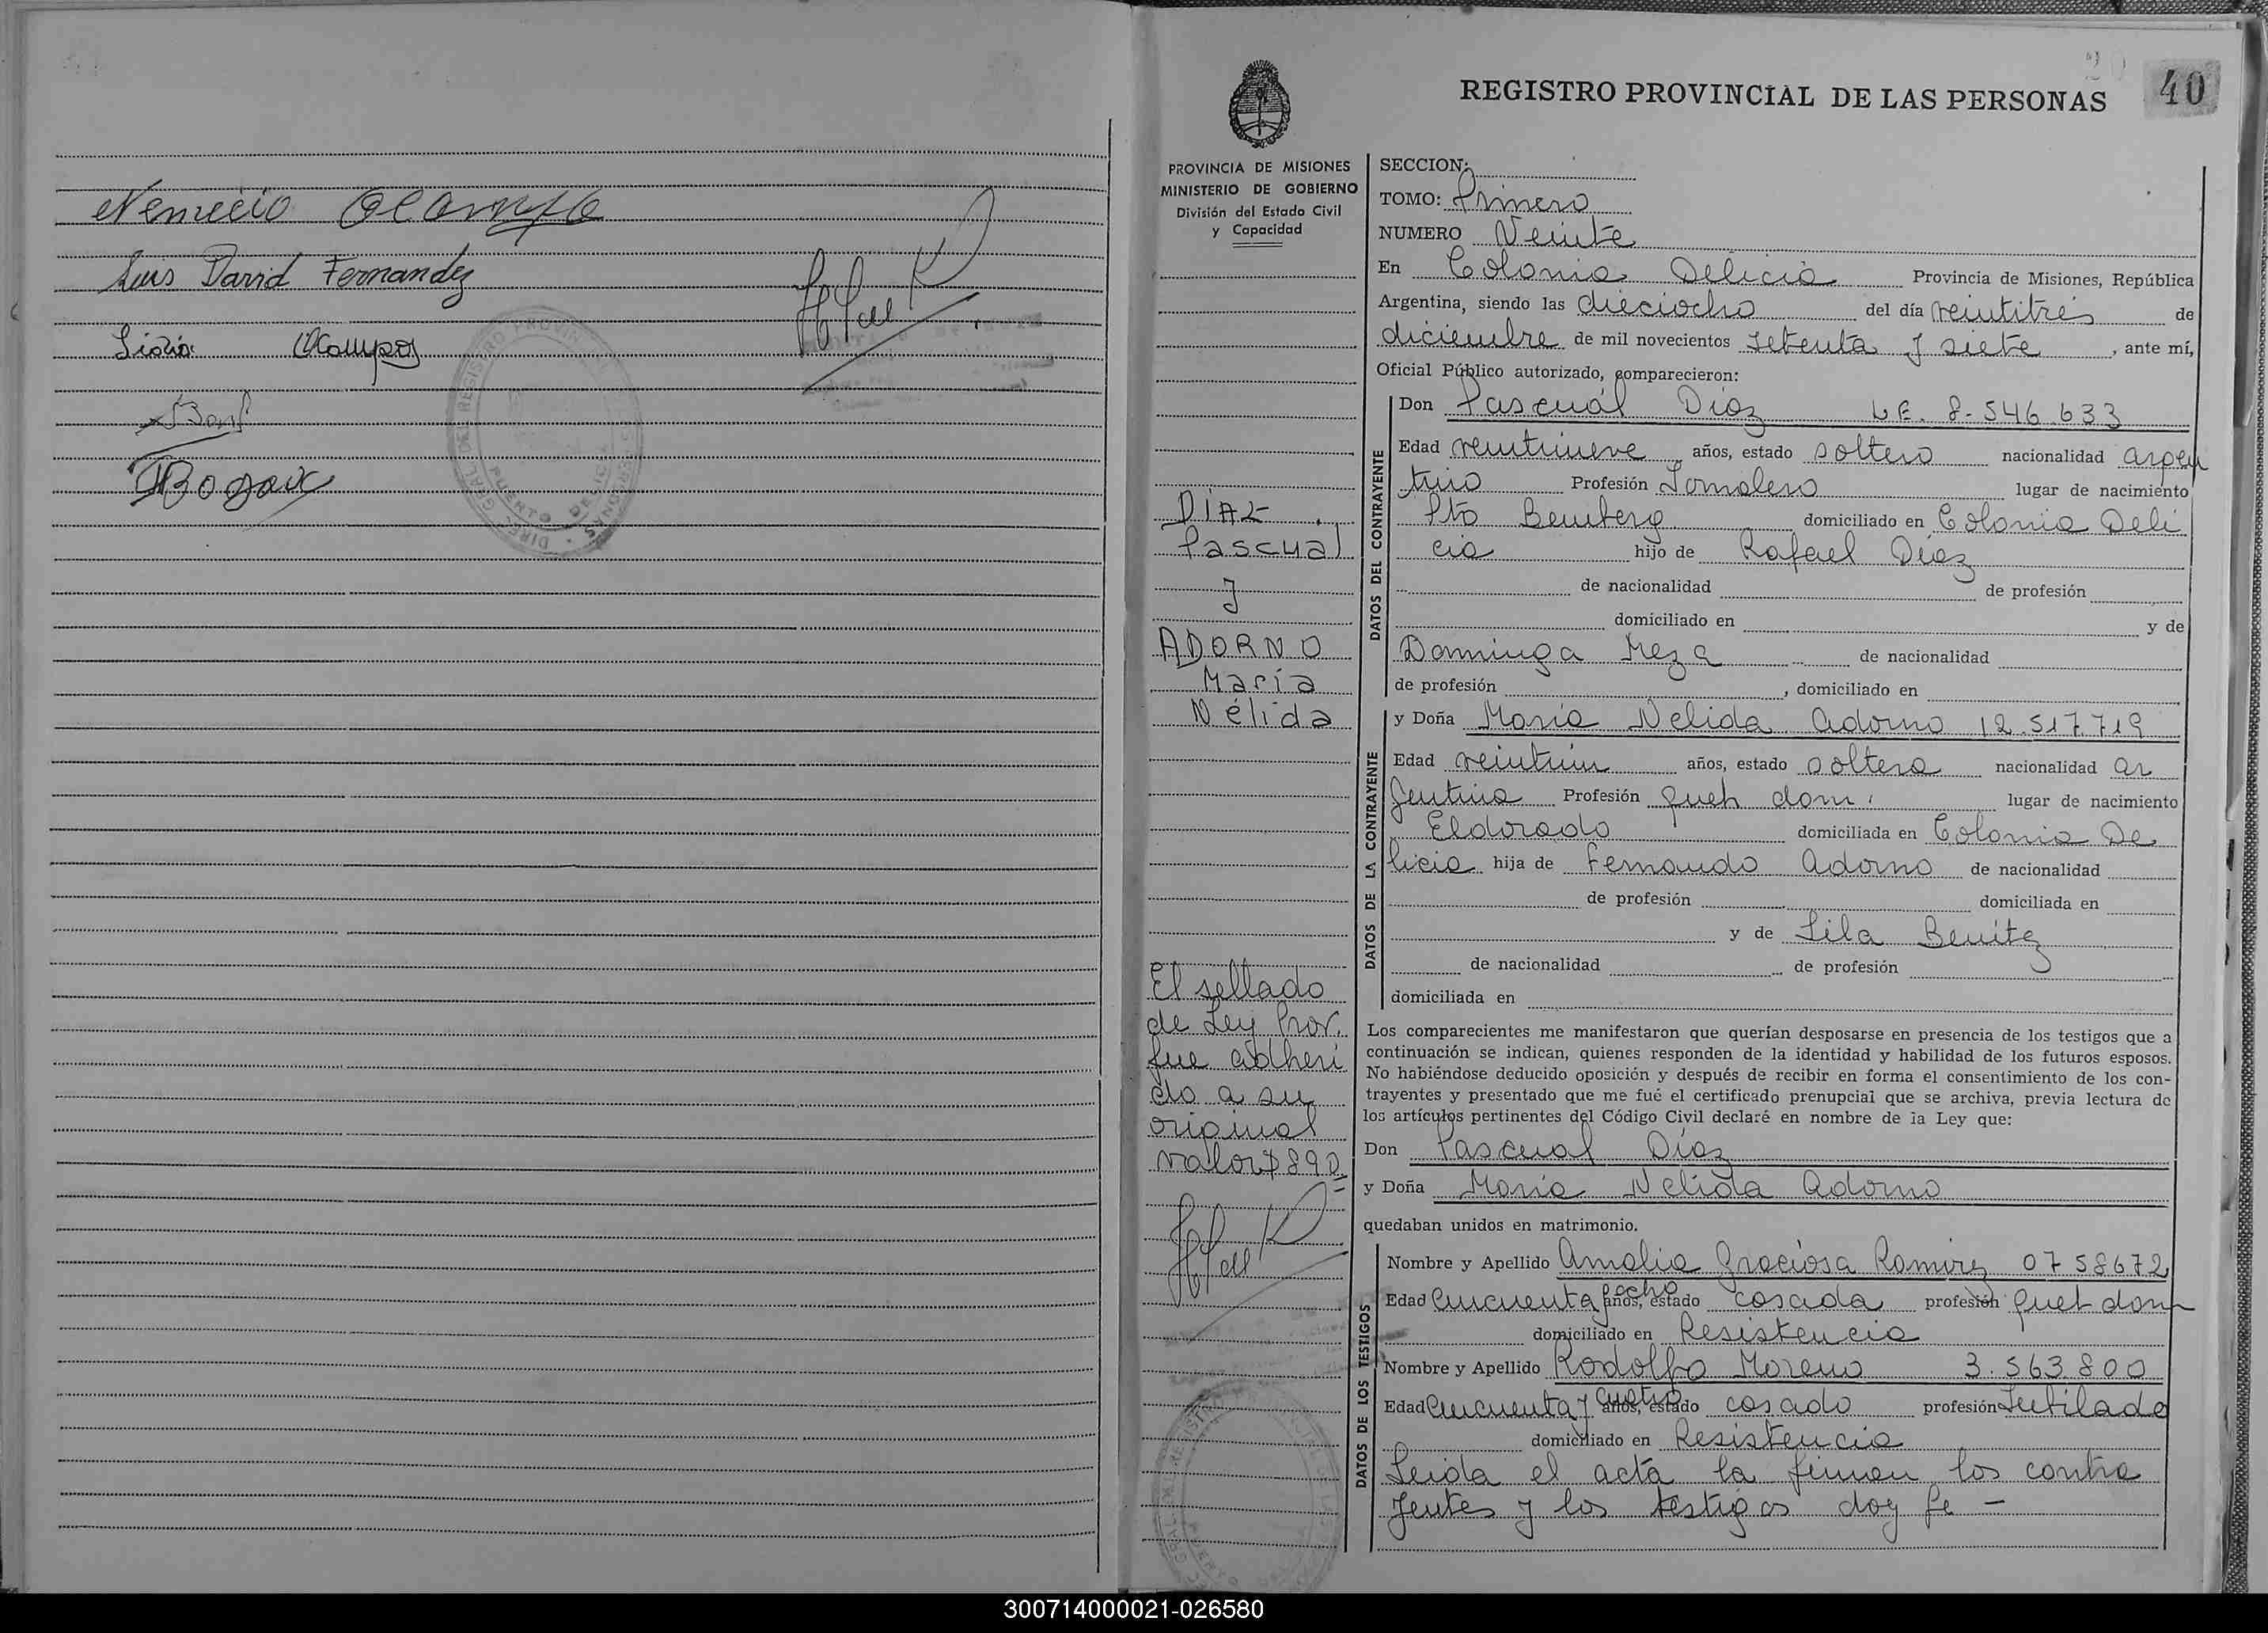 Nemecio Ocampo
Luis David Fernandez
Ocampos
REGISTRO PROVINCIAL DE LAS PERSONAS
40
PROVINCIA DE MISIONES
MINISTERIO DE GOBIERNO
División del Estado Civil
y Capacidad
DIAZ
Pascual
y
ADORNO
María
Nélida
El sellado
de Ley Prov.
fue adheri
do a su
original
valor $ 890
SECCION:
TOMO: Primero
NUMERO Veinte
En Colonia Delicia Provincia de Misiones, República
Argentina, siendo las dieciocho del día veintitrés de
diciembre de mil novecientos setenta y siete, ante mí,
Oficial Público autorizado, comparecieron:
DATOS DEL CONTRAYENTE
Don Pascual Díaz L.E. 8.546.633
Edad veintinueve años, estado soltero nacionalidad argen
tino Profesión Jornalero lugar de nacimiento
Pto Bemberg domiciliado en Colonia Deli
cia hijo de Rafael Díaz
de nacionalidad de profesión
domiciliado en y de
Dominga Meza de nacionalidad
de profesión , domiciliado en
DATOS DE LA CONTRAYENTE
y Doña María Nelida Adorno 12.517.719
Edad veintiún años, estado soltera nacionalidad ar
gentina Profesión queh dom. lugar de nacimiento
Eldorado domiciliada en Colonia De
licia hija de Fernando Adorno de nacionalidad
de profesión domiciliada en
y de Lila Benitez
de nacionalidad de profesión
domiciliada en
Los comparecientes me manifestaron que querían desposarse en presencia de los testigos que a
continuación se indican, quienes responden de la identidad y habilidad de los futuros esposos.
No habiéndose deducido oposición y después de recibir en forma el consentimiento de los con-
trayentes y presentado que me fué el certificado prenupcial que se archiva, previa lectura de
los artículos pertinentes del Código Civil declaré en nombre de la Ley que:
Don Pascual Díaz
y Doña María Nelida Adorno
quedaban unidos en matrimonio.
DATOS DE LOS TESTIGOS
Nombre y Apellido Amalia Graciosa Ramirez 0758672
Edad Cincuenta y ocho años, estado casada profesión queh dom
domiciliado en Resistencia
Nombre y Apellido Rodolfo Moreno 3.563.800
Edad Cincuenta y cuatro años, estado casado profesión Jubilado
domiciliado en Resistencia
Leida el acta la firman los contra
yentes y los testigos doy fe -
300714000021-026580